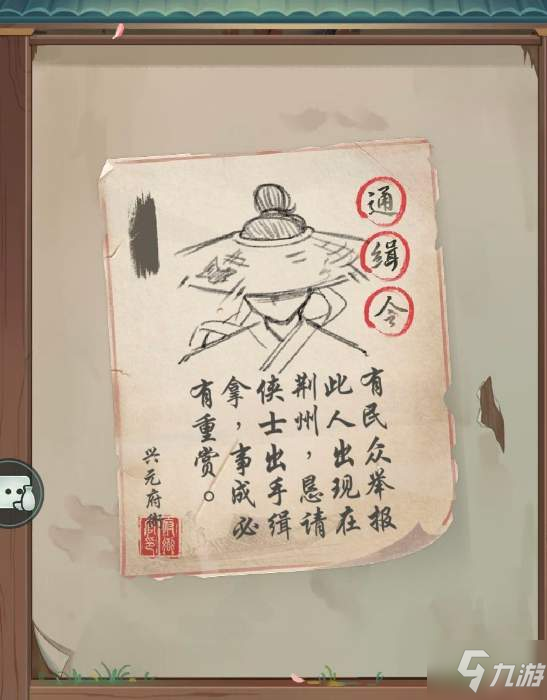 通缉令
有民众举报
此人出现在
荆州，恳请
侠士出手缉
拿，事成必
有重赏。
兴元府衙
九游